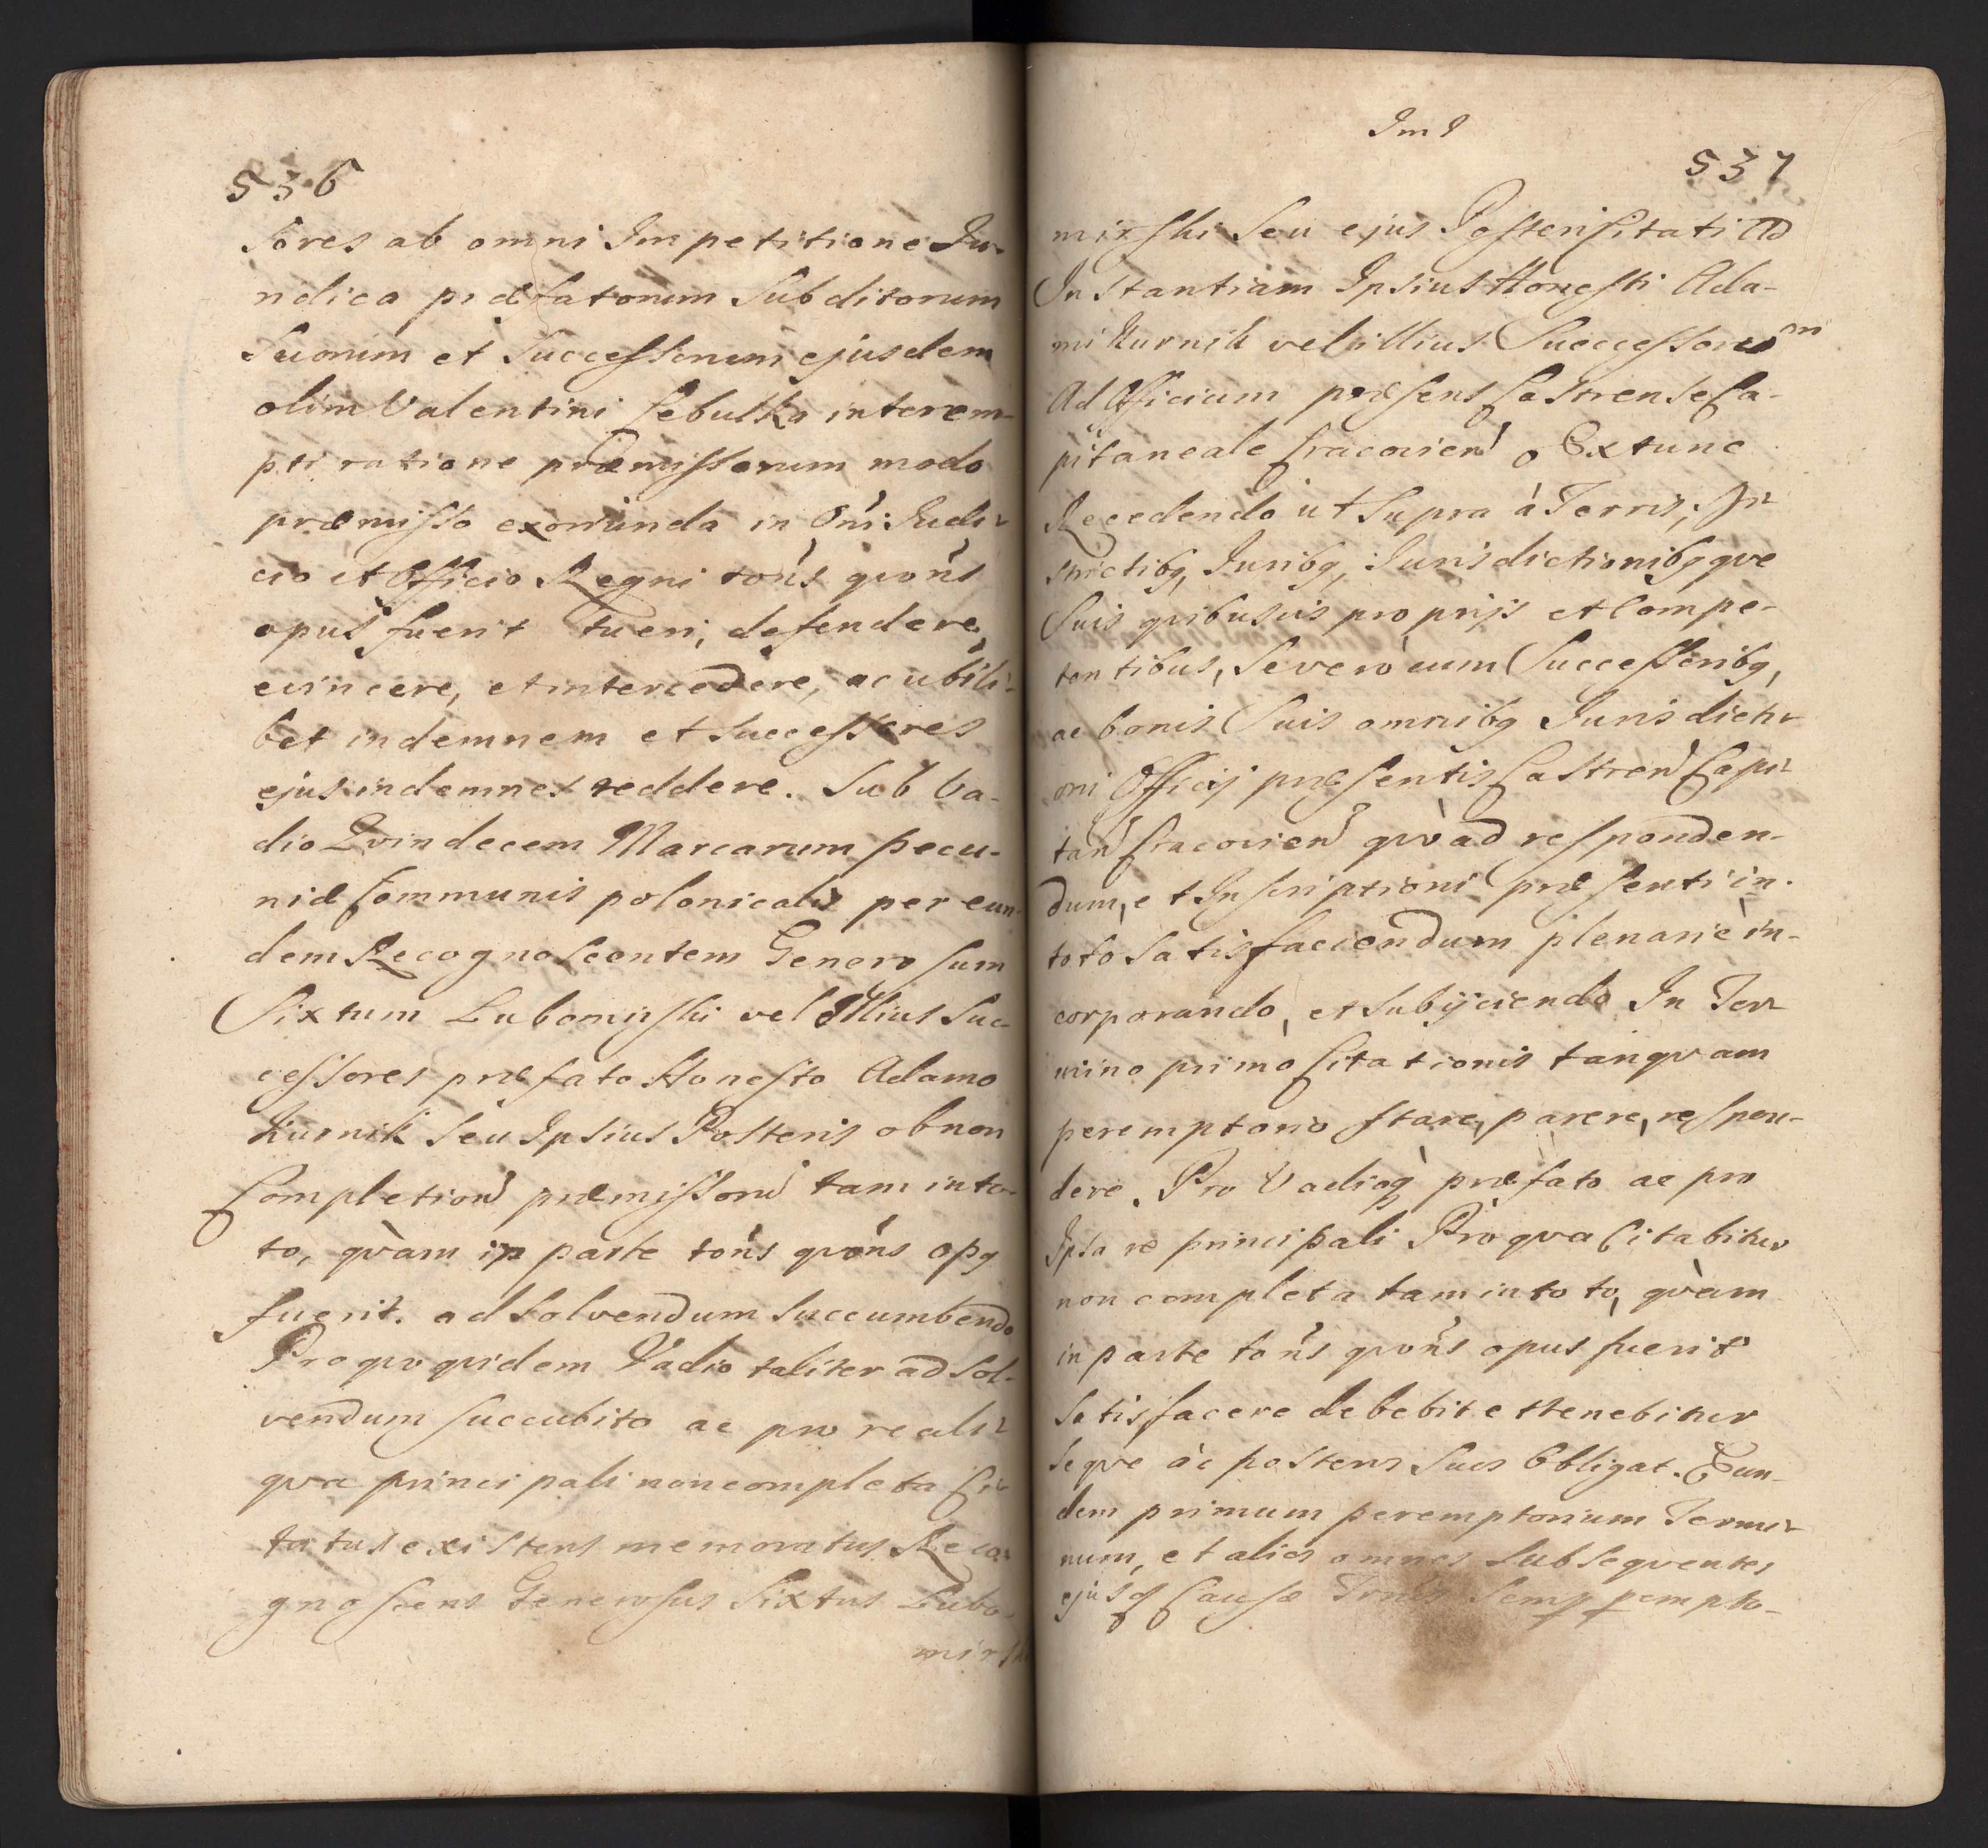 536
sores ab omni Impetitione Ju-
ridica præfatorum Subditorum
Suorum et Successorum ejusdem
olim Valentini Cebulka interem-
pti ratione præmissorum modo
præmisso exoriunda in Oni Judi-
cio et Officio Regni tons qvons
opus fuerit tueri, defendere,
evincere, et intercedere, ac ubili-
bet indemnem et Successores
ejus indemnes reddere. Sub Va-
dio Qvindecem Marcarum pecu-
niæ Communis polonicalis per eun-
dem Recognoscentem Generosum
Sixtum Lubomirski vel Illius Suc-
cessores præfato Honesto Adamo
Kurnik Seu Ipsius Posteris ob non
Completion præmissoru tam in to-
to, qvàm in parte tons qvons opq
fuerit. ad Solvendum Succumbendo
Pro qvo qvidem Vadio taliter ad Sol-
vendum Succubito ac pro re ali-
qva principali non completa Ci-
tatus existens memoratus Reco-
gnoscens Generosus Sixtus Lubo-
mirski
537
mirski Seu ejus Posterisitati Ad
Instantiam Ipsius Honesti Ada-
mi Kurnik vel illius Successorum
Ad Officium præsens Castrense Ca-
pitaneale Cracovien Extunc
Recedendo ut Supra à Terris, Di-
strictibq, Juribq, Jurisdictionibqqve
Suis qvibusvis proprijs et Compe-
tentibus, Se vero cum Successoribq,
ac bonis Suis omnibq Jurisdicti-
oni Officij præsentis Castren Capi-
tan Cracovien qvò ad responden-
dum, et Inscriptioni præsenti in-
toto Satisfaciendum plenariè in-
corporando, et Subijciendo In Ter-
mino primo Citationis tanqvam
peremptorio stare, parere, respon-
dere. Pro Vadioq præfato ac pro
Ipsa re principali Pro qva Citabitur
non completa tam in toto, qvàm
in parte tons qvons opus fuerit
Satisfacere debebit et tenebitur
Seqve ac posteros Suos Obligat. Eun-
dem primum peremptorium Termi-
num, et alios omnes Subseqventes
ejusq Causæ Trnos Semp pempto-